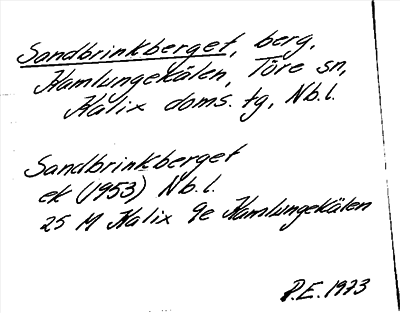 Sandbrinkberget, berg,
Hamlungekälen, Töre sn,
Kalix doms. tg, Nb.l.
Sandbrinkberget
ek (1953) Nb.l.
25 M Kalix 9e Hamlungekälen
P.E. 1973